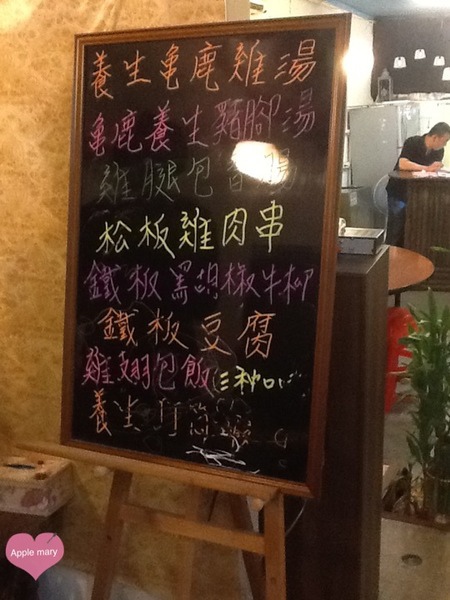 養生龜鹿雞湯
龜鹿養生豬腳湯
雞腿包香腸
松板雞肉串
鐵板黑胡椒牛柳
鐵板豆腐
雞翅包飯(三種口
養生竹筒
Apple mary